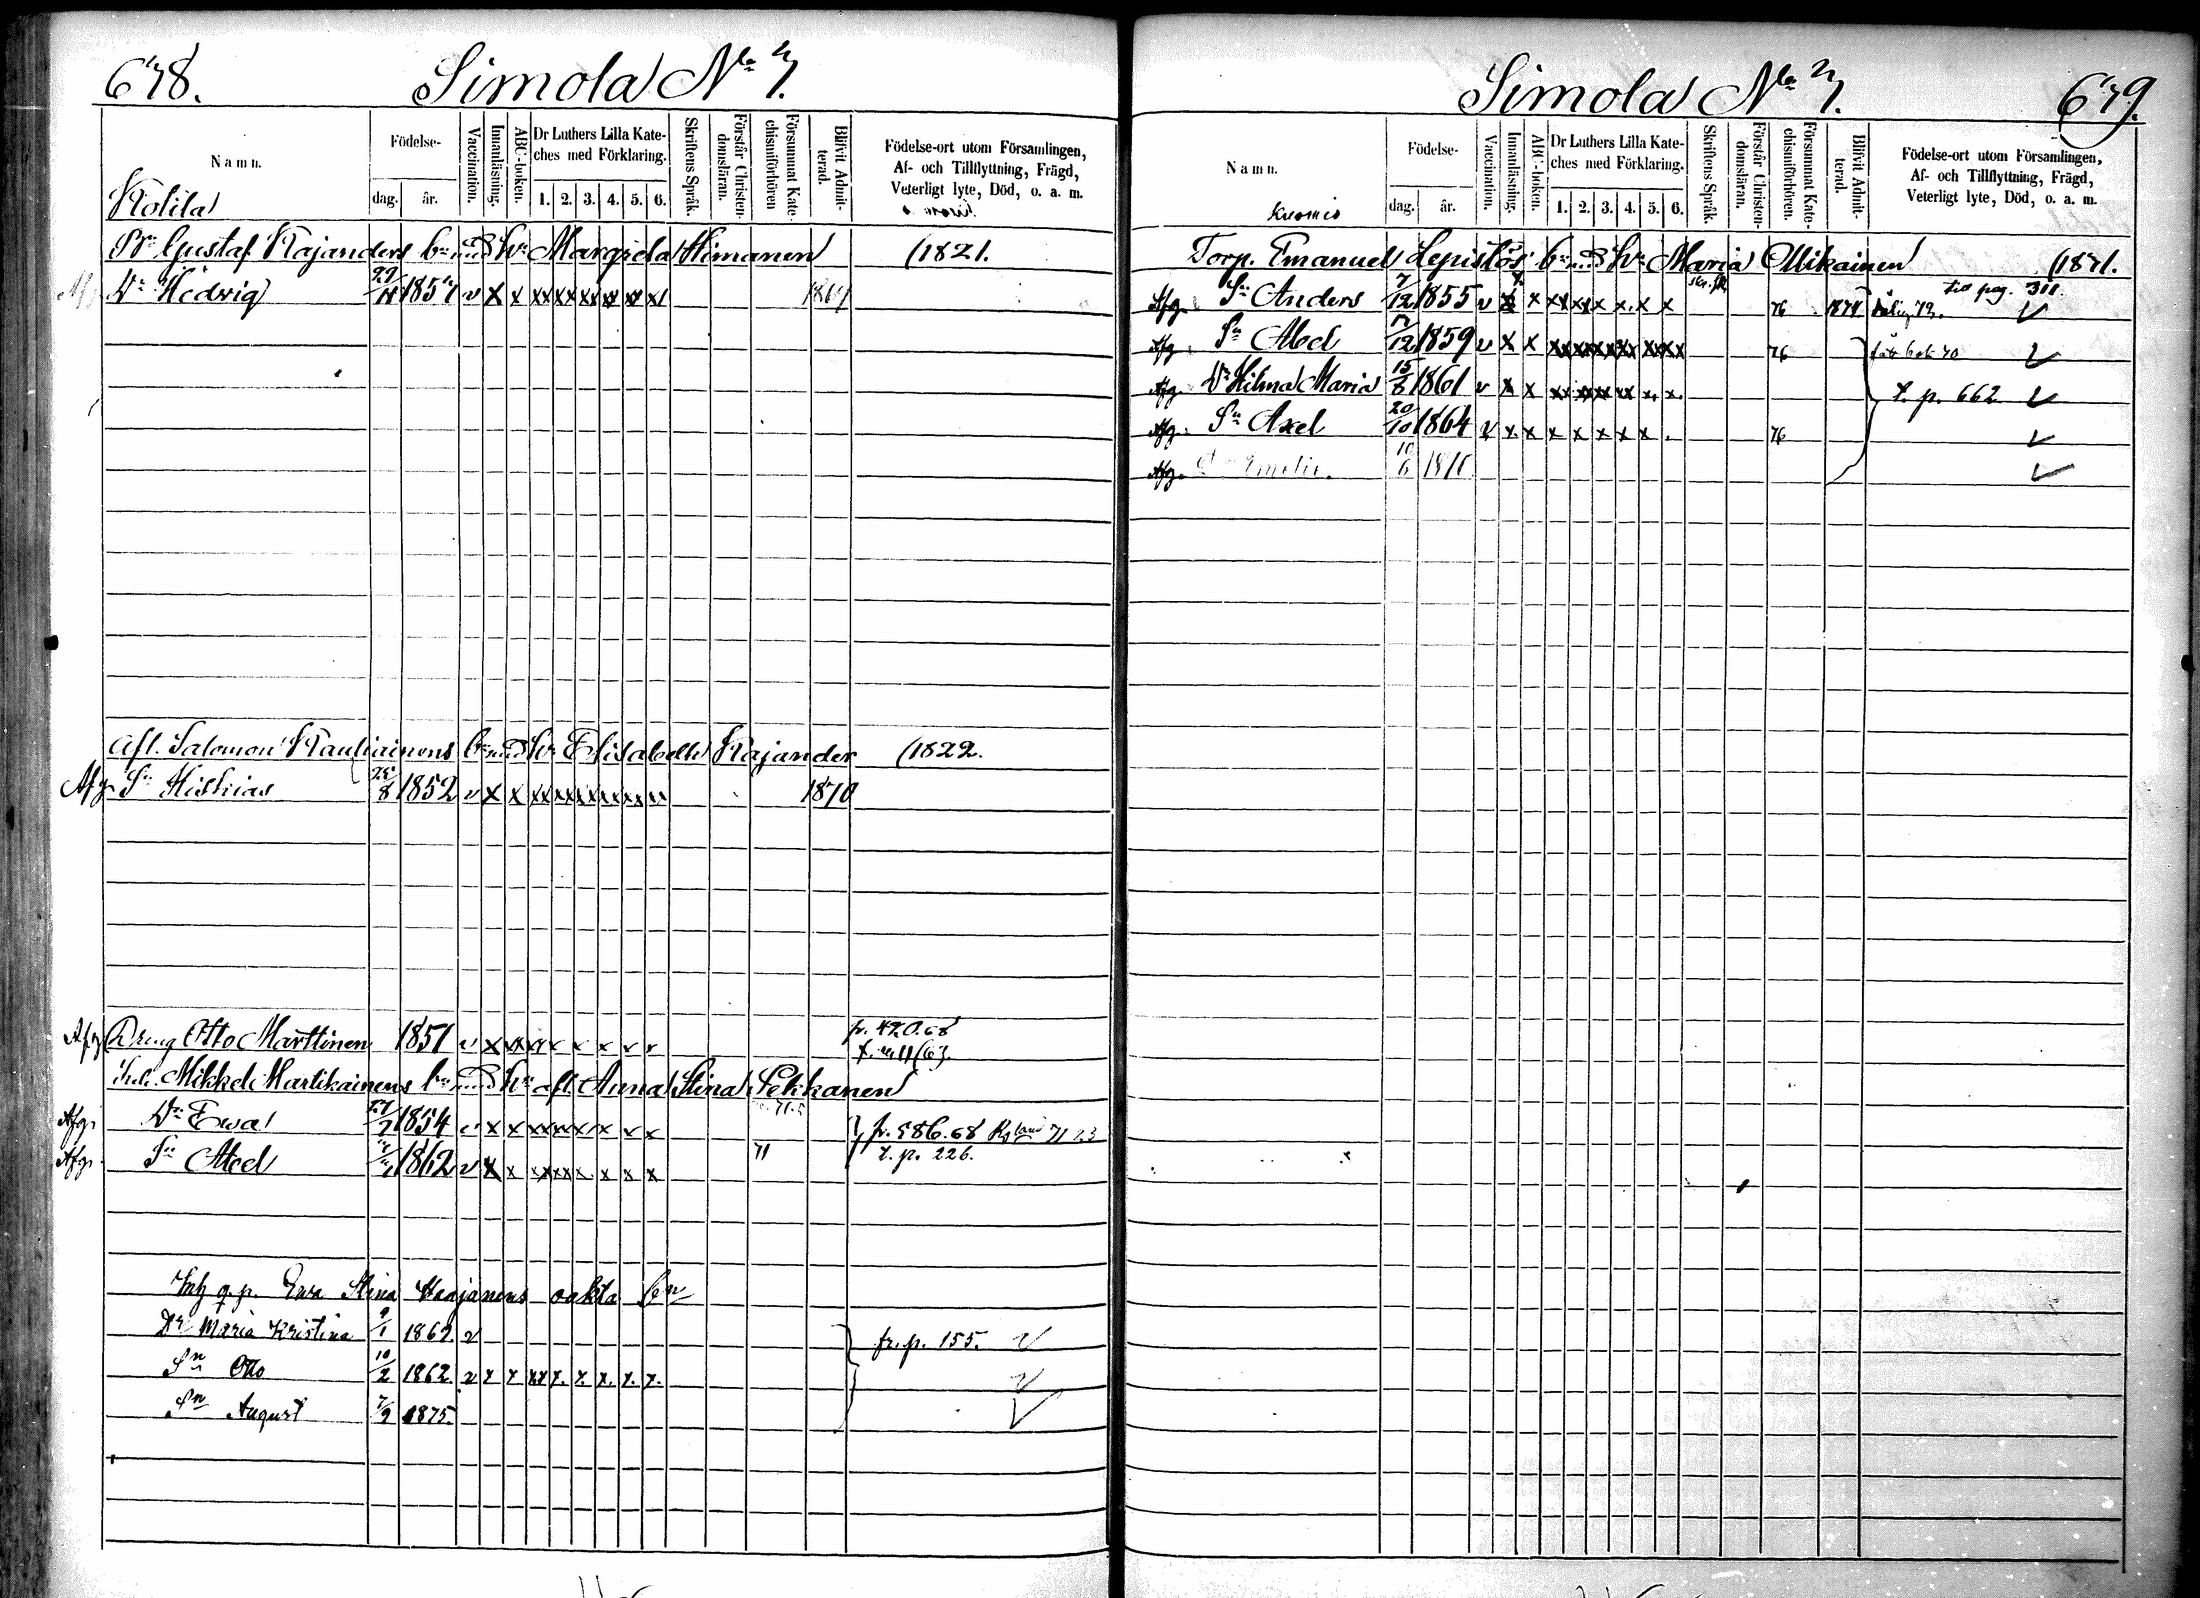 678.
Simola N:o 7.
Namn.
Födelse-
dag.
år.
Vaccination.
Innanläsning.
ABC-boken.
Dr Luthers Lilla Kate-
ches med Förklaring.
1. 2. 3. 4. 5. 6.
Skriftens Språk.
Förstår Christen-
domsläran.
Försummat Kate-
chismiförhören
Blifvit Admit-
terad.
Födelse-ort utom Församlingen,
Af- och Tillflyttning, Frägd,
Veterligt lyte, Död, o. a. m.
Kolila
Gustaf Kajanders bn med hu Margreta Himanen (1821.
Dr Hedvig 1857 v x x xx xx xx xx xx 1867
Afl. Salomon Rautiainens bn med hu Elisabeth Kajander (1822.
Afg Sn Hiskias 8 1852 v x x xx xx xx xx xx 1870
Afg Dreng Otto Marttinen 1851 v x xx
Mikkel Martikainens bn med hu afl. Anna Stina Pekkanen
Afg. Dr Ewa 27/7 1854 v x x xx xx x x x x
p. 586.68
Afg. Sn Abel 1862 v x x xx xx x x x x 71
t. p. 226.
Inh q. p. Ewa Stina Haajanens oäkta bn
Dr Maria Kristina 9/1 1869. v
fr. p. 155.
Sn Otto 10/2 1862. v x x xx x. x. x. x. x.
Sn August 7/9 1875.
Simola N:o 7.
679.
Namn.
Födelse-
dag.
år.
Vaccination.
Innanläsning.
ABC-boken.
Dr Luthers Lilla Kate-
ches med Förklaring.
1. 2. 3. 4. 5. 6.
Skriftens Språk.
Förstår Christen-
domsläran.
Försummat Kate-
chismiförhören.
Blifvit Admit-
terad.
Födelse-ort utom Församlingen,
Af- och Tillflyttning, Frägd,
Veterligt lyte, Död, o. a. m.
Torp. Emanuel Lepistös bn med hu Maria Mikainen (1871.
till pag. 311.
Afg. Sn Anders 7/12 1855 v x x xx xx x x x x 76 1874
Afg. Sn Abel 12 1859 v x x xx xx xx xx xx xx 76
Afg. Dr Hilma Maria 15/8 1861 v x x xx xx xx xx x. x.
t. p. 662
Afg. Sn Axel 20/10 1864 v x. x x x x x x . 76
Afg. Emelie. 10/6 1870